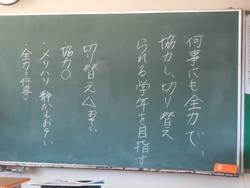 何事にも全力で、
協力し、切り替え
られる学年を目指す
切り替え△おそい
協力〇
・メリハリ 静かがおそい
・全力な行事